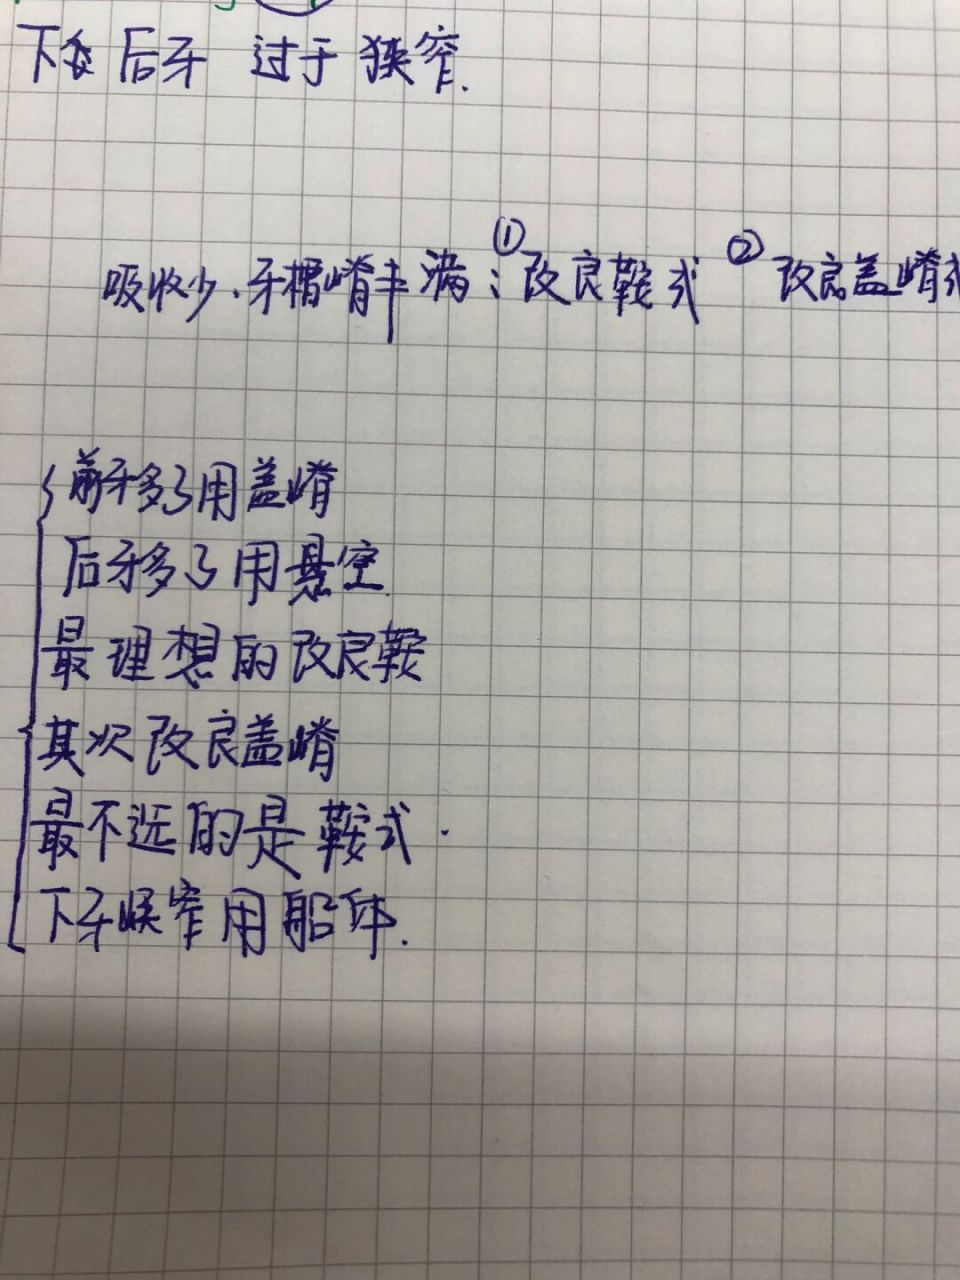 下后牙 过于狭窄.
吸收少.牙槽嵴丰满:①改良鞍式 ②改良盖嵴式
前牙多了用盖嵴
后牙多了用悬空.
最理想的改良鞍
其次改良盖嵴
最不近的是鞍式.
下牙狭窄用船件.